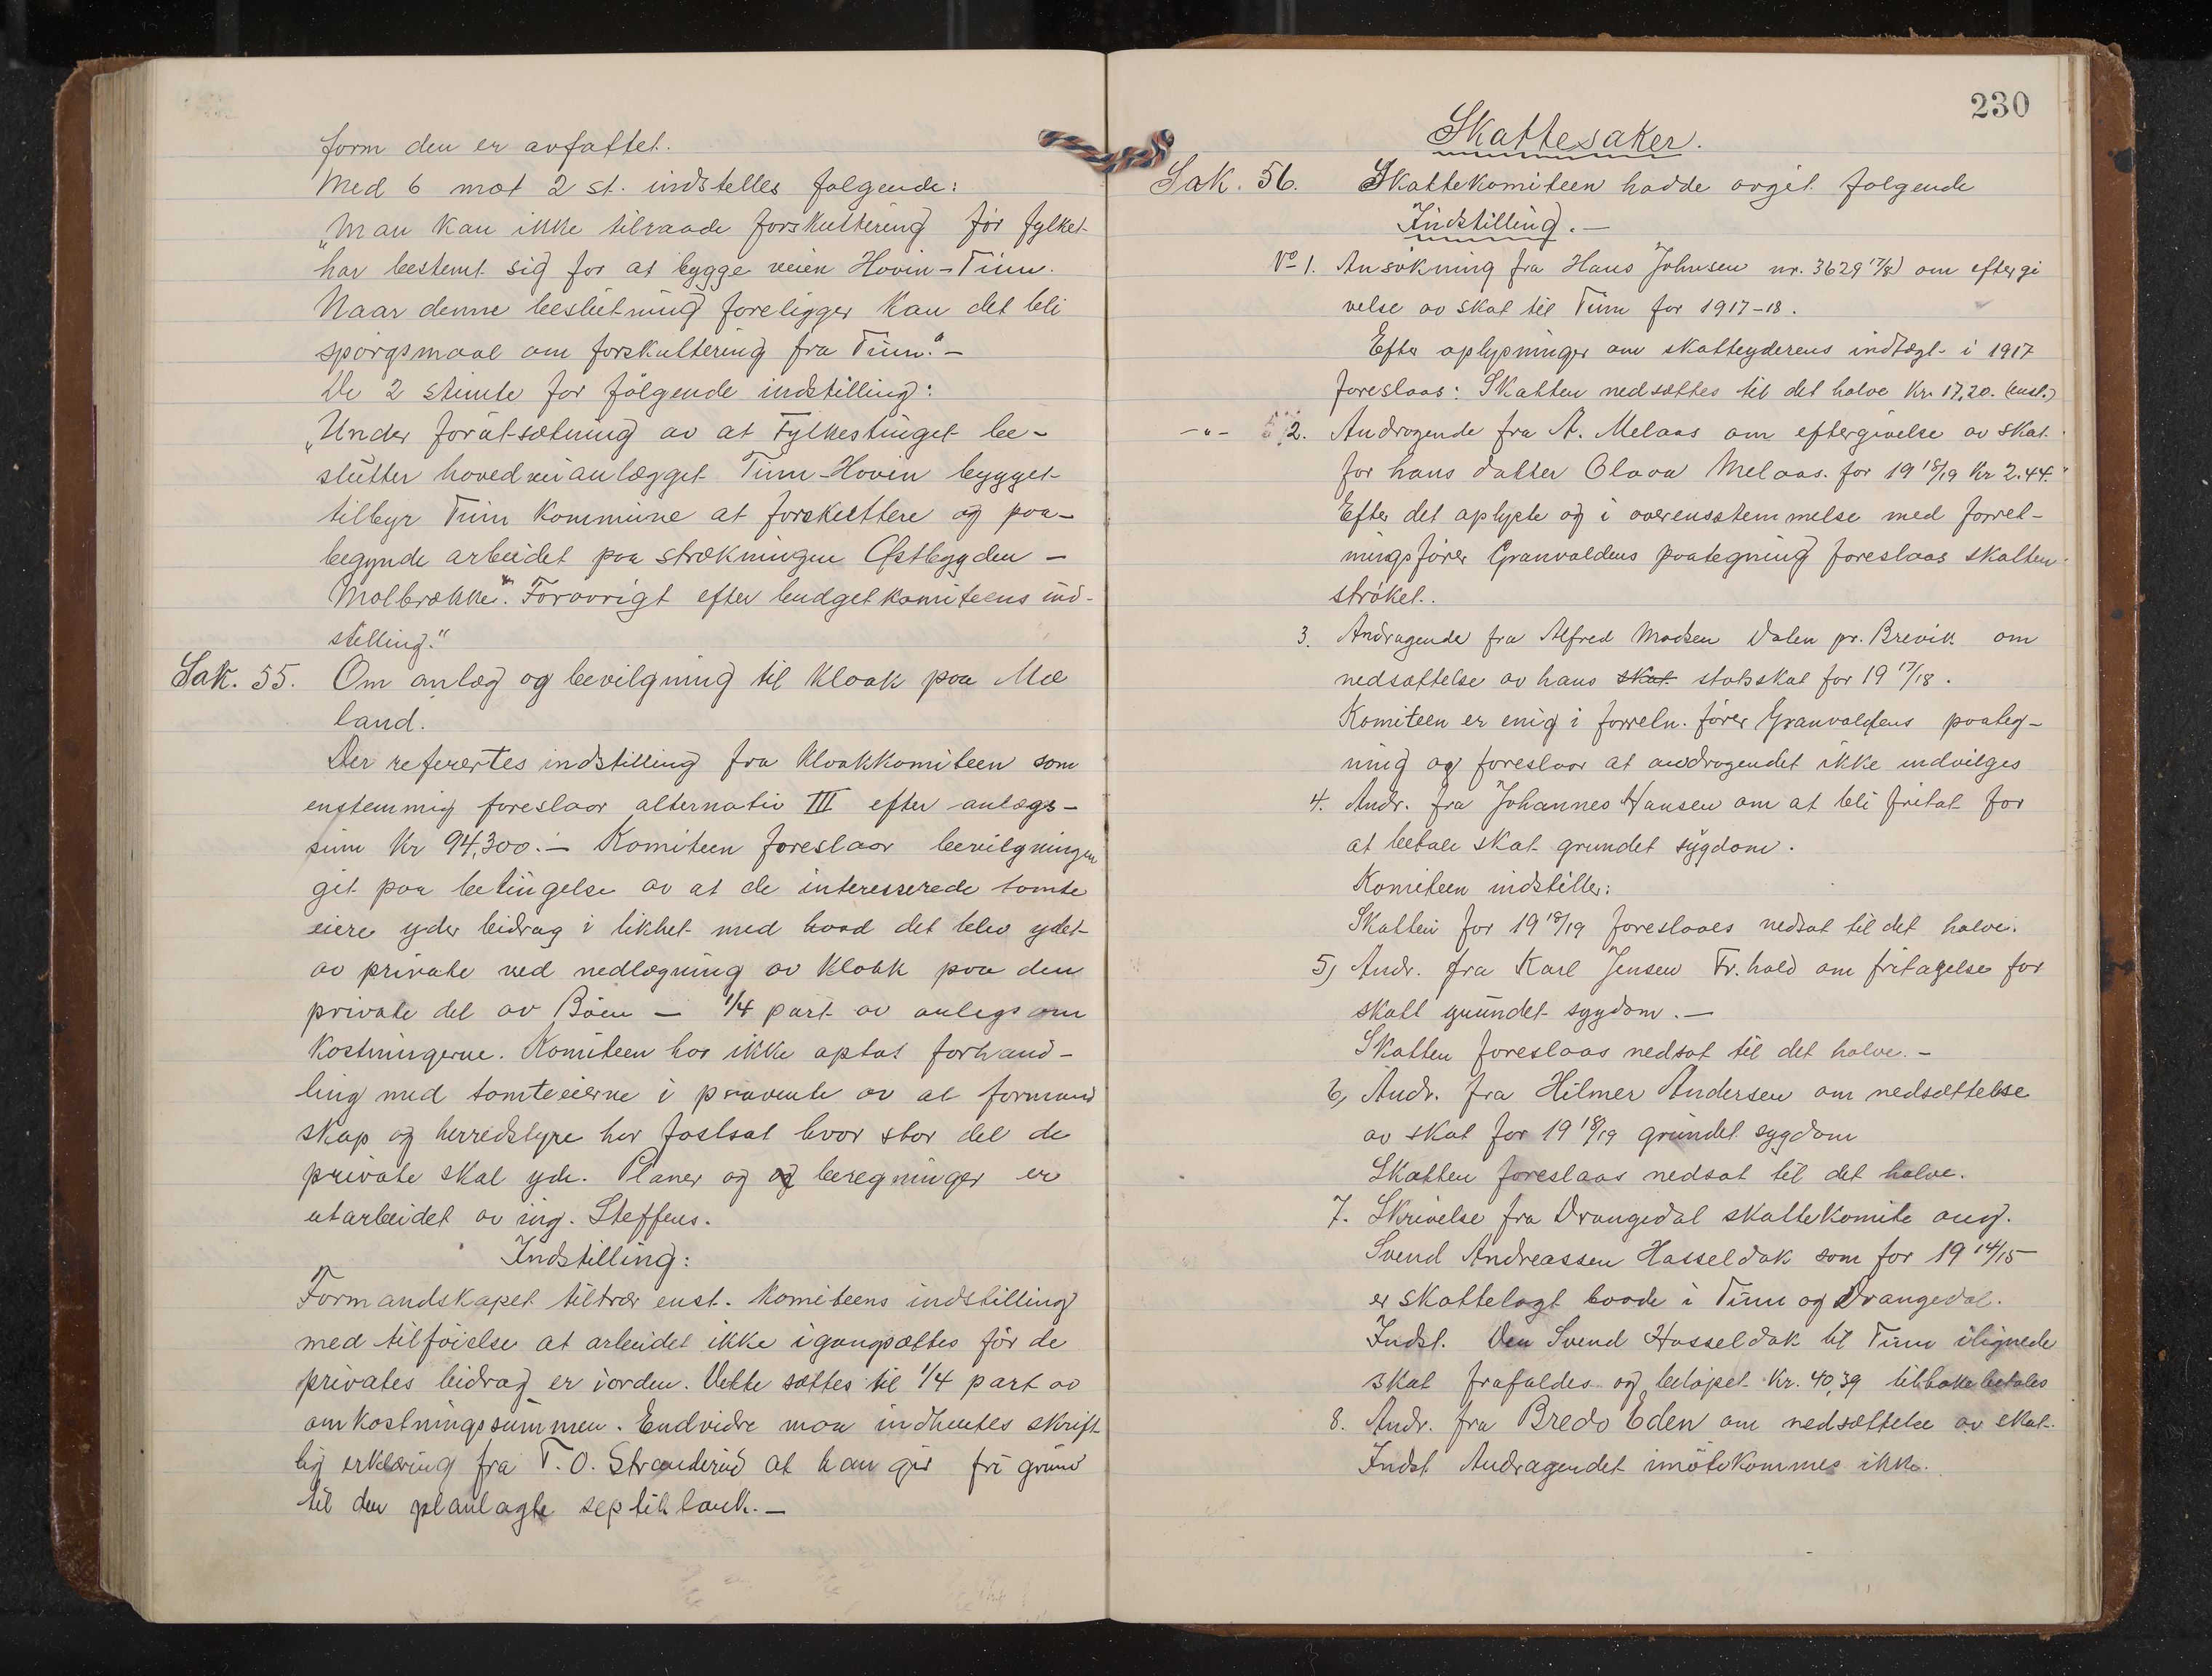 form den er avfattet.
Med 6 mot 2 st. indstelles følgende:
„Man kan ikke tilraade forskuttering før fylket
har bestemt sig for at bygge veien Hovin-Tinn.
Naar denne beslutning foreligger kan det bli
spørgsmaal om forskuttering fra Tinn." –
De 2 stemte for følgende indstilling:
„Under forutsætning av at Fylkestinget be-
slutter hovedveianlægget Tinn-Hovin bygget
tilbyr Tinn kommune at forskuttere og paa-
begynde arbeidet paa strækningen Østbygden –
Molbrække". Forøvrigt efter budgetkomiteens ind-
stilling."
Sak. 55. Om anlæg og bevilgning til kloak paa Mæ
land.
Der refertes indstilling fra kloakkomiteen som
enstemmig foreslaar alternativ III efter anlægs-
sum Kr 94,300.– Komiteen foreslaar bevilgningen
git paa betingelse av at de interesserede tomte
eiere yder bidrag i likhet med hvad det blev ydet
av private ved nedlægning av kloak paa den
private del av Bøen – 1/4 part av anlegsom
kostningerne. Komiteen har ikke optat forhand-
ling med tomteeierne i påvente av at formand
skap og herredstyre har fastsat hvor stor del de
private skal yde. Planer og og beregninger er
utarbeidet av ing. Steffens.
Indstilling:
Formandskapet tiltrær enst. komiteens indstilling
med tilføielse at arbeidet ikke igangsættes før de
privates bidrag er iorden. Dette sættes til 1/4 part av
omkostningssummen. Endvidre maa indhentes skrift
lig erklæring fra T. O. Stranderud at han gir fri grund
til den planlagte septiktank. –
230
Skattesaker.
Sak. 56. Skattekomiteen hadde avgit følgende
Indstilling. –
No 1. Ansøkning fra Hans Johnsen nr. 3629 17/8) om eftergi
velse av skat til Tinn for 1917-18.
Efter oplysninger om skatteyderens indtægt i 1917
foreslaas: Skatten nedsættes til det halve Kr. 17,20. (enst.)
-„- 2. Andragende fra A. Melaas om eftergivelse av skat
for hans datter Olava Melaas. for 19 18/19 Kr 2.44."
Efter det oplyste og i overensstemmelse med forret-
ningsfører Granvoldens paategning foreslaas skatten
strøket.
3. Andragende fra Alfred Madsen Dalen pr. Brevik om
nedsættelse av hans skat statsskat for 19 17/18.
Komiteen er enig i forretn. fører Granvoldens paateg-
ning og foreslaar at andragendet ikke indvilges
4. Andr. fra Johannes Hansen om at bli fritat for
at betale skat grundet sygdom.
Komiteen indstiller:
Skatten for 19 18/19 foreslaaes nedsat til det halve.
5) Andr. fra Karl Jensen Fr.hald om fritagelse for
skatt grundet sygdom. –
Skatten foreslaas nedsat til det halve. –
6, Andr. fra Hilmer Andersen om nedsættelse
av skat for 19 18/19 grundet sygdom
Skatten foreslaas nedsat til det halve.
7. Skrivelse fra Drangedal skattekomite ang.
Svend Andreassen Hasseldak som for 19 14/15
er skattelagt baade i Tinn og Drangedal.
Indst. Den Svend Hasseldak til Tinn ilignede
skat frafaldes og beløpet Kr. 40,39 tilbakebetales
8. Andr. fra Bredo Eden om nedsættelse av skat.
Indst. Andragendet imøtekommes ikke.